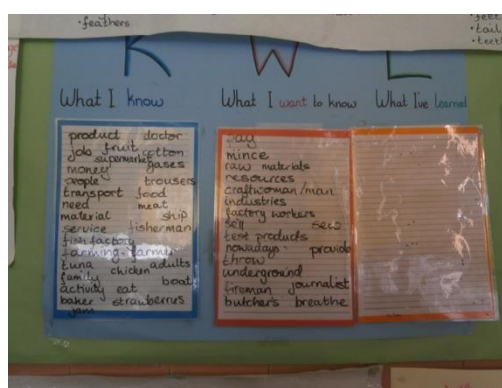 •feathers
•tail
•teeth
K W L
What I know
What I want to know
What I've learned
product doctor
job fruit cotton
supermarket
money gases
people trousers
transport food
need meat
material ship
service fisherman
fish factory
farming-farmer
tuna adults
family chicken
boat
activity eat
baker strawberries
jam
say
mince
raw materials
resources
craftwoman/man
industries
factory workers
sell sew
test products
nowadays provide
throw
underground
fireman journalist
butcher's breathe